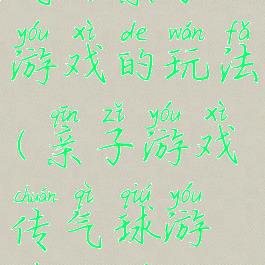 yóu xì de wán fǎ
游戏的玩法
qīn zǐ yóu xì
(亲子游戏
chuán qì qiú yóu
传气球游